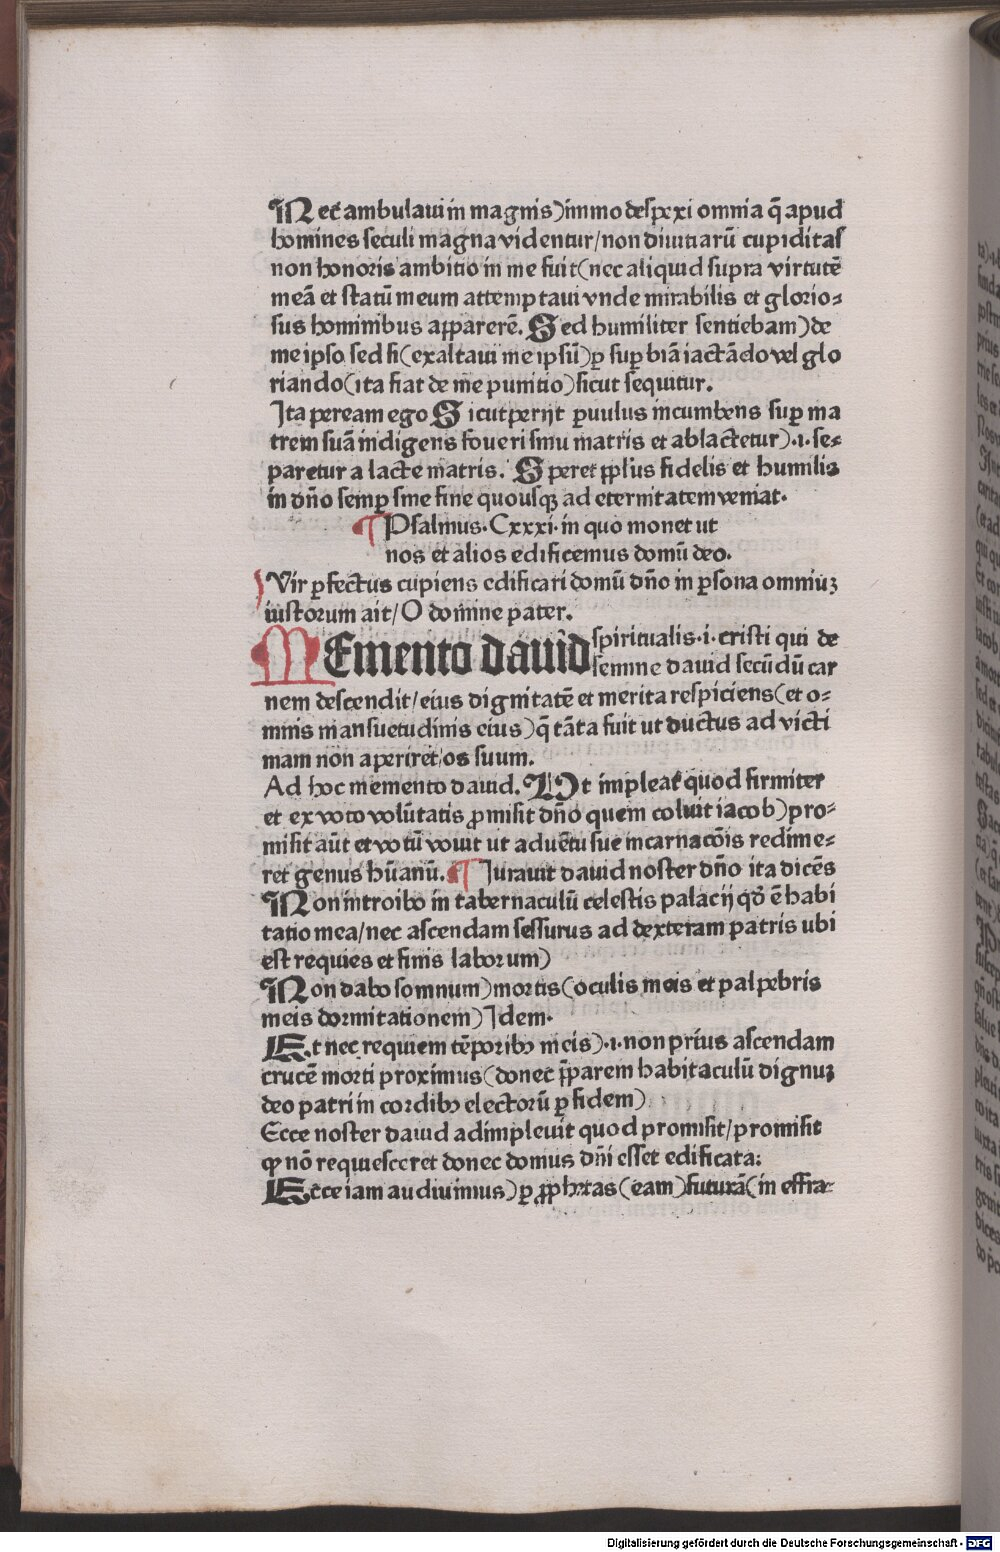 Nec ambulaui in magnis)immo despexi omnia q̃ apud
homines seculi magna videntur/non diuitiarũ cupiditas
non honoris ambitio in me fuit(nec aliquid supra virtutẽ
meã et statũ meum attemptaui vnde mirabilis et glorio-
sus hominibus apparerẽ. Sed humiliter sentiebam)de
me ipso sed si(exaltaui me ipsũ)ꝑ suꝑbiã iactãdo vel glo
riando(ita fiat de me punitio)sicut sequitur.
Ita peream ego Sicut perijt ꝑuulus incumbens suꝑ ma
trem suã indigens foueri sinu matris et ablactetur).i.se-
paretur a lacte matris. Speret pp̄lus fidelis et humilis
in dño semꝑ sine fine quousqꝫ ad eternitatem veniat.
¶ Psalmus.Cxxxi.in quo monet ut
nos et alios edificemus domũ deo.
Vir ꝑfectus cupiens edificari domũ dño in ꝑsona omniuꝫ
iustorum ait/O domine pater.
MEmento dauid spiritualis.i.cristi qui de
semine dauid secũdũ car
nem descendit/eius dignitatẽ et merita respiciens(et o-
mnis mansuetudinis eius)q̃ tãta fuit ut ductus ad victi
mam non aperiret/os suum.
Ad hoc memento dauid. Vt impleat̉ quod firmiter
et ex voto volũtatis ꝓmisit dño quem coluit iacob)pro-
misit aũt et votũ vouit ut aduẽtu sue incarnacõis redime-
ret genus hũanũ. ¶ Iurauit dauid noster dño ita dicẽs
Non introibo in tabernaculũ celestis palacij qď ẽ habi
tatio mea/nec ascendam sessurus ad dexteram patris ubi
est requies et finis laborum)
Non dabo somnum)mortis(oculis meis et palpebris
meis dormitationem)Idem.
Et nec requiem tẽporibꝰ meis).i.non prius ascendam
crucẽ morti proximus(donec p̄parem habitaculũ dignuꝫ
deo patri in cordibꝰ electorũ ꝑ fidem)
Ecce noster dauid adimpleuit quod promisit/promisit
ꝙ nõ requiesceret donec domus dñi esset edificata:
Ecce iam audiuimus)ꝑ ꝓphetas(eam)futurã(in effra-
Digitalisierung gefördert durch die Deutsche Forschungsgemeinschaft - DFG